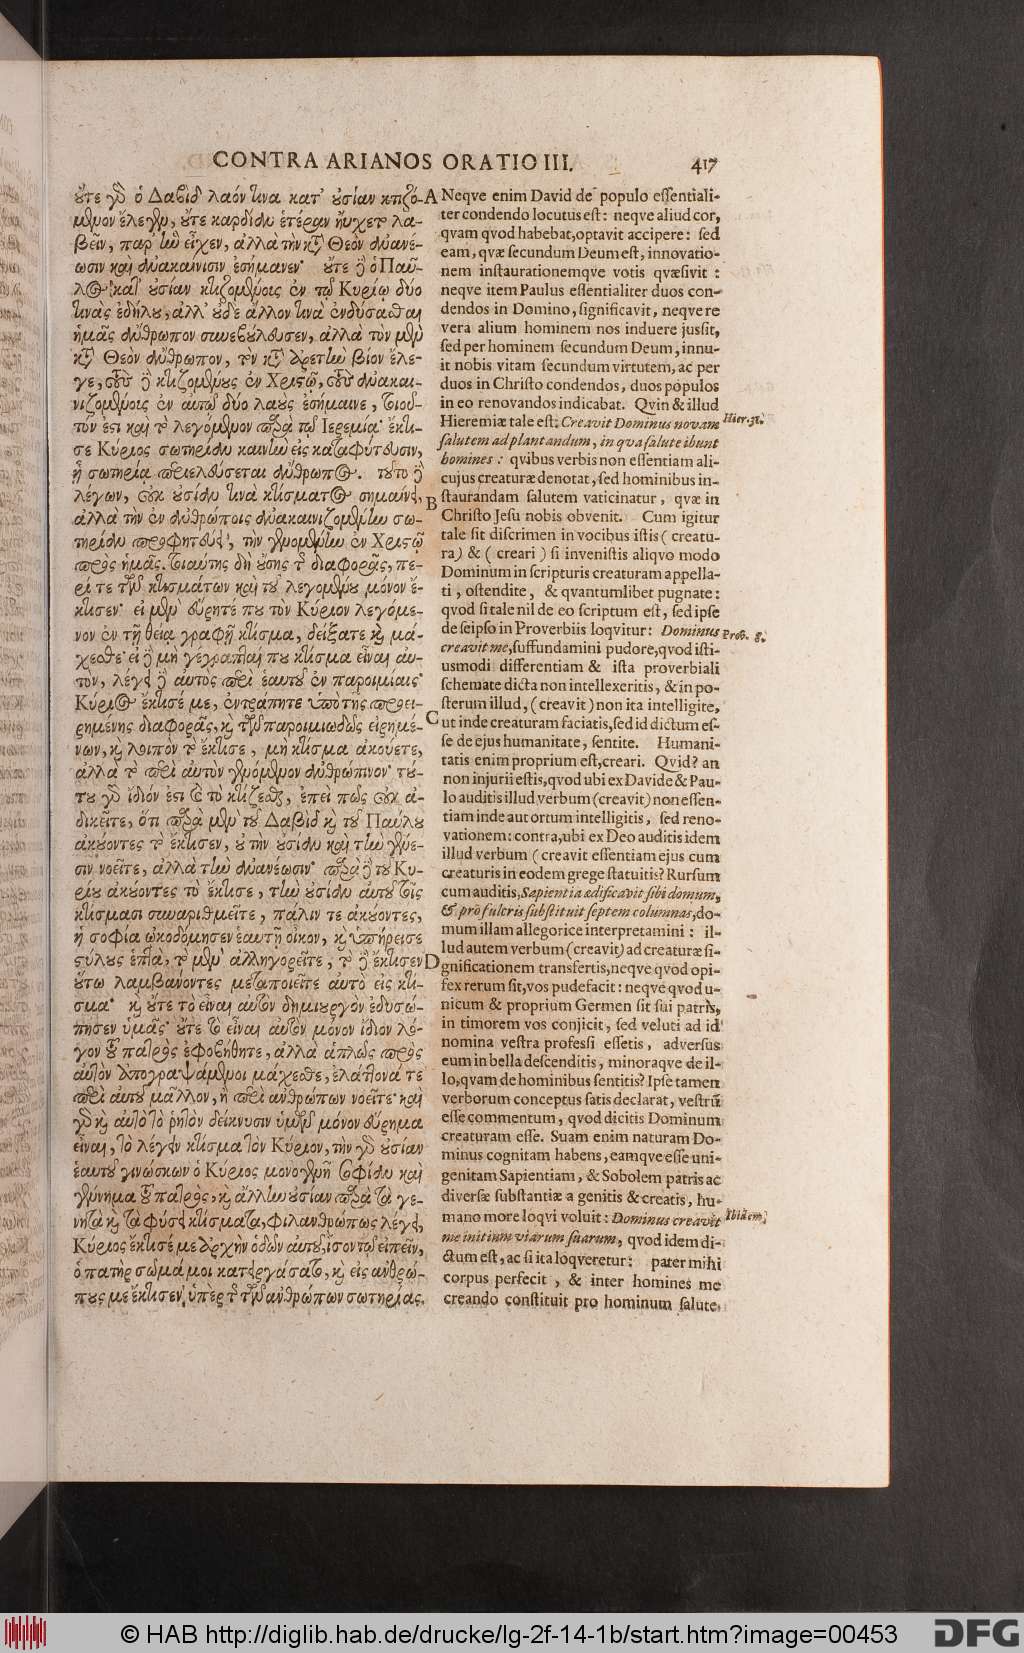 CONTRA ARIANOS ORATIO III. 417
οὔτε γὰρ ὁ Δαβὶδ λαόν τινα κατ' οὐσίαν κτιζό-
μενον ἔλεγεν, οὔτε καρδίαν ἑτέραν ηὔχετο λα-
βεῖν, παρ' ἣν εἶχεν, ἀλλὰ τὴν κατὰ Θεὸν ἀνανέ-
ωσιν καὶ ἀνακαίνισιν ἐσήμανεν· οὔτε δὲ ὁ Παῦ-
λος κατ' οὐσίαν κτιζομένοις ἐν τῷ Κυρίῳ δύο
τινὰς ἐδήλου, ἀλλ' οὐδὲ ἄλλον τινὰ ἐνδύσασθαι
ἡμᾶς ἄνθρωπον συνεβούλευσεν, ἀλλὰ τὸν μὲν
κατὰ Θεὸν ἄνθρωπον, τὸν κατὰ ἀρετὴν βίον ἔλε-
γε, τοὺς δὲ κτιζομένους ἐν Χριστῷ, τοὺς ἀνακαι-
νιζομένοις ἐν αὐτῷ δύο λαοὺς ἐσήμαινε, τοιοῦ-
τόν ἐστι καὶ τὸ λεγόμενον παρὰ τῷ Ιερεμίᾳ· ἔκτι-
σε Κύριος σωτηρίαν καινὴν εἰς καταφύτευσιν,
ᾗ σωτηρίᾳ περιελεύσεται ἄνθρωπος. τοῦτο δὲ
λέγων, οὐκ οὐσίαν τινὰ κτίσματος σημαίνει,
ἀλλὰ τὴν ἐν ἀνθρώποις ἀνακαινιζομένην σω-
τηρίαν προφητεύει, τὴν γενομένην ἐν Χριστῷ
πρὸς ἡμᾶς. τοιαύτης δὴ οὔσης τῆς διαφορᾶς, πε-
ρί τε τῶν κτισμάτων καὶ τοῦ λεγομένου μόνον ἔ-
κτισεν· εἰ μὲν εὕρητέ που τὸν Κύριον λεγόμε-
νον ἐν τῇ θείᾳ γραφῇ κτίσμα, δείξατε καὶ μά-
χεσθε· εἰ δὲ μὴ γέγραπταί που κτίσμα εἶναι αὐ-
τὸν, λέγει δὲ αὐτὸς περὶ ἑαυτοῦ ἐν παροιμίαις·
Κύριος ἔκτισέ με, ἐντράπητε ὑπὸ τῆς προει-
ρημένης διαφορᾶς, καὶ τῶν παροιμιωδῶς εἰρημέ-
νων, καὶ λοιπὸν τὸ ἔκτισε, μὴ κτίσμα ἀκούετε,
ἀλλὰ τὸ περὶ αὐτὸν γενόμενον ἀνθρώπινον· τού-
του γὰρ ἴδιόν ἐστι τὸ τὸ κτίζεσθαι, ἐπεὶ πῶς οὐκ ἀ-
δικεῖτε, ὅτι παρὰ μὲν τοῦ Δαβὶδ καὶ τοῦ Παύλου
ἀκούοντες τὸ ἔκτισεν, οὐ τὴν οὐσίαν καὶ τὴν γένε-
σιν νοεῖτε, ἀλλὰ τὴν ἀνανέωσιν· παρὰ δὲ τοῦ Κυ-
ρίου ἀκούοντες τὸ ἔκτισε, τὴν οὐσίαν αὐτοῦ τοῖς
κτίσμασι συναριθμεῖτε, πάλιν τε ἀκούοντες,
ἡ σοφία ᾠκοδόμησεν ἑαυτῇ οἶκον, καὶ ὑπήρεισε
στύλους ἑπτὰ, τὸ μὲν ἀλληγορεῖτε, τὸ δὲ ἔκτισεν
οὕτω λαμβάνοντες μεταποιεῖτε αὐτὸ εἰς κτί-
σμα· καὶ οὔτε τὸ εἶναι αὐτὸν δημιουργὸν ἐδυσώ-
πησεν ὑμᾶς· οὔτε τὸ εἶναι αὐτὸν μόνον ἴδιον λό-
γον τοῦ πατρὸς ἐφοβήθητε, ἀλλὰ ἁπλῶς πρὸς
αὐτὸν ἀπογραψάμενοι μάχεσθε, ἐλάττονά τε
περὶ αὐτοῦ μᾶλλον, ἢ περὶ ἀνθρώπων νοεῖτε· καὶ
γὰρ καὶ αὐτὸ τὸ ῥητὸν δείκνυσιν ὑμῶν μόνον εὕρημα
εἶναι, τὸ λέγειν κτίσμα τὸν Κύριον, τὴν γὰρ οὐσίαν
ἑαυτοῦ γινώσκων ὁ Κύριος μονογενῆ σοφίαν καὶ
γέννημα τοῦ πατρὸς, καὶ ἄλλην οὐσίαν παρὰ τὰ γε-
νητὰ καὶ τὰ φύσει κτίσματα, φιλανθρώπως λέγει,
Κύριος ἔκτισέ με ἀρχὴν ὁδῶν αὐτοῦ, ἴσον τῷ εἰπεῖν,
ὁ πατὴρ σῶμά μοι κατειργάσατο, καὶ εἰς ἀνθρώ-
πους με ἔκτισεν ὑπὲρ τῆς τῶν ἀνθρώπων σωτηρίας.
A
B
C
D
Neqve enim David de populo essentiali-
ter condendo locutus est: neqve aliud cor,
qvam qvod habebat, optavit accipere: sed
eam, qvæ secundum Deum est, innovatio-
nem instaurationemqve votis qvæsivit:
neqve item Paulus essentialiter duos con-
dendos in Domino, significavit, neqve re
vera alium hominem nos induere jussit,
sed per hominem secundum Deum, innu-
it nobis vitam secundum virtutem, ac per
duos in Christo condendos, duos populos
in eo renovandos indicabat. Qvin & illud
Hieremiæ tale est: Creavit Dominus novam
salutem ad plantandum, in qva salute ibunt
homines: qvibus verbis non essentiam ali-
cujus creaturæ denotat, sed hominibus in-
staurandam salutem vaticinatur, qvæ in
Christo Jesu nobis obvenit. Cum igitur
tale sit discrimen in vocibus istis (creatu-
ra) & (creari) si invenistis aliqvo modo
Dominum in scripturis creaturam appella-
ti, ostendite, & qvantumlibet pugnate:
qvod si tale nil de eo scriptum est, sed ipse
de seipso in Proverbiis loqvitur: Dominus
creavit me, suffundamini pudore, qvod isti-
usmodi differentiam & ista proverbiali
schemate dicta non intellexeritis, & in po-
sterum illud, (creavit) non ita intelligite,
ut inde creaturam faciatis, sed id dictum es-
se de ejus humanitate, sentite. Humani-
tatis enim proprium est, creari. Qvid? an
non injurii estis, qvod ubi ex Davide & Pau-
lo auditis illud verbum (creavit) non essen-
tiam inde aut ortum intelligitis, sed reno-
vationem: contra, ubi ex Deo auditis idem
illud verbum (creavit essentiam ejus cum
creaturis in eodem grege statuitis? Rursum
cum auditis, Sapientia ædificavit sibi domum,
& pro fulcris substituit septem columnas, do-
mum illam allegorice interpretamini: il-
lud autem verbum (creavit) ad creaturæ si-
gnificationem transfertis, neqve qvod opi-
fex rerum sit, vos pudefacit: neqve qvod u-
nicum & proprium Germen sit sui patris,
in timorem vos conjicit, sed veluti ad id
nomina vestra professi essetis, adversus
eum in bella descenditis, minoraqve de il-
lo, qvam de hominibus sentitis? Ipse tamen
verborum conceptus satis declarat, vestrū
esse commentum, qvod dicitis Dominum
creaturam esse. Suam enim naturam Do-
minus cognitam habens, eamqve esse uni-
genitam Sapientiam, & Sobolem patris ac
diversæ substantiæ a genitis & creatis, hu-
mano more loqvi voluit: Dominus creavit
me initium viarum suarum, qvod idem di-
ctum est, ac si ita loqveretur: pater mihi
corpus perfecit, & inter homines me
creando constituit pro hominum salute,
Hier. 31.
Prob. 8.
Ibidem.
© HAB http://diglib.hab.de/drucke/lg-2f-14-1b/start.htm?image=00453
DFG